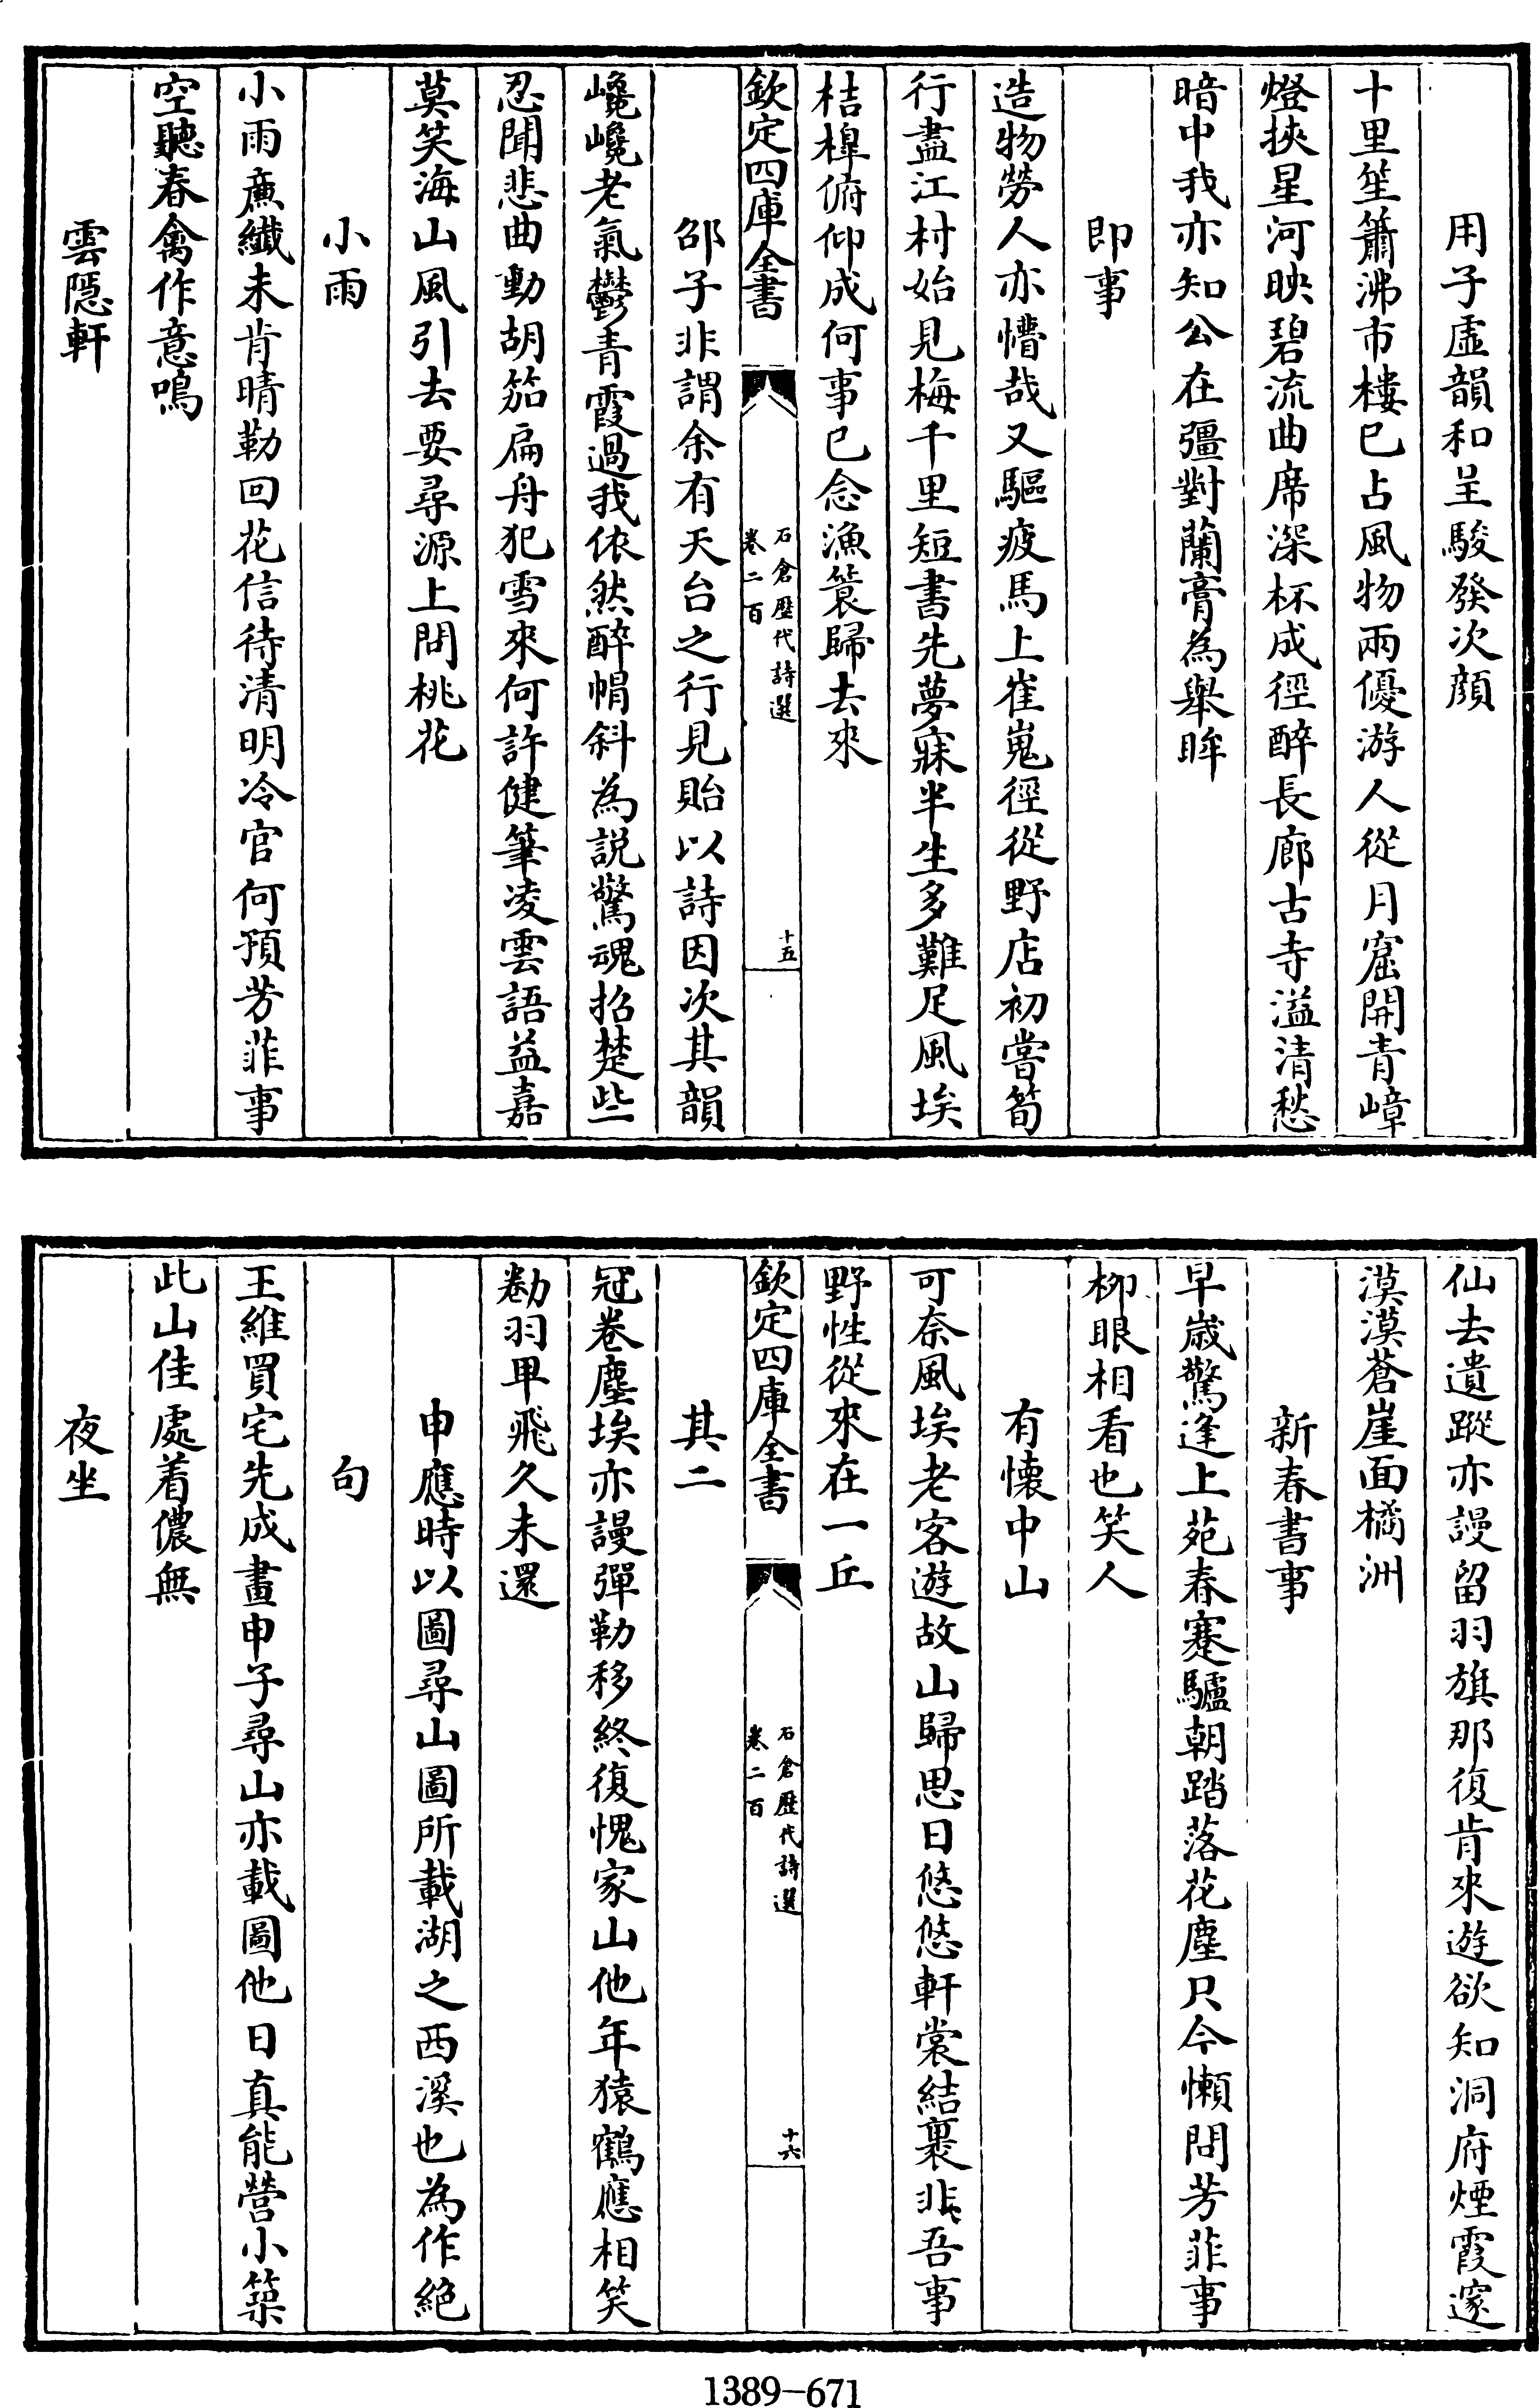 用子虛韻和呈駿發次顔
十里笙簫沸市樓已占風物兩優游人從月窟開青嶂
燈挾星河映碧流曲席深杯成徑醉長廊古寺溢清愁
暗中我亦知公在彊對蘭膏為舉眸
即事
造物勞人亦懵哉又驅疲馬上崔嵬徑從野店初嘗筍
行盡江村始見梅千里短書先夢寐半生多難足風埃
桔橰俯仰成何事已念漁簑歸去來
欽定四庫全書
石倉歷代詩選
卷二百
十五
邵子非謂余有天台之行見貽以詩因次其韻
巉巉老氣鬱青霞過我依然醉帽斜為説驚魂招楚些
忍聞悲曲動胡笳扁舟犯雪來何許健筆凌雲語益嘉
莫笑海山風引去要尋源上問桃花
小雨
小雨亷纖未肯晴勒回花信待清明冷官何預芳菲事
空聽春禽作意鳴
雲隱軒
仙去遺蹤亦謾留羽旗那復肯來遊欲知洞府煙霞邃
漠漠蒼崖面橘洲
新春書事
早歲驚逢上苑春蹇驢朝踏落花塵只今懶問芳菲事
柳眼相看也笑人
有懐中山
可奈風埃老客遊故山歸思日悠悠軒裳結裹非吾事
野性從來在一丘
欽定四庫全書
石倉歷代詩選
卷二百
十六
其二
冠卷塵埃亦謾彈勒移終復愧家山他年猿鶴應相笑
勌羽卑飛久未還
申應時以圖尋山圖所載湖之西溪也為作絶
句
王維買宅先成畫申子尋山亦載圖他日真能營小築
此山佳處着儂無
夜坐
1389-671